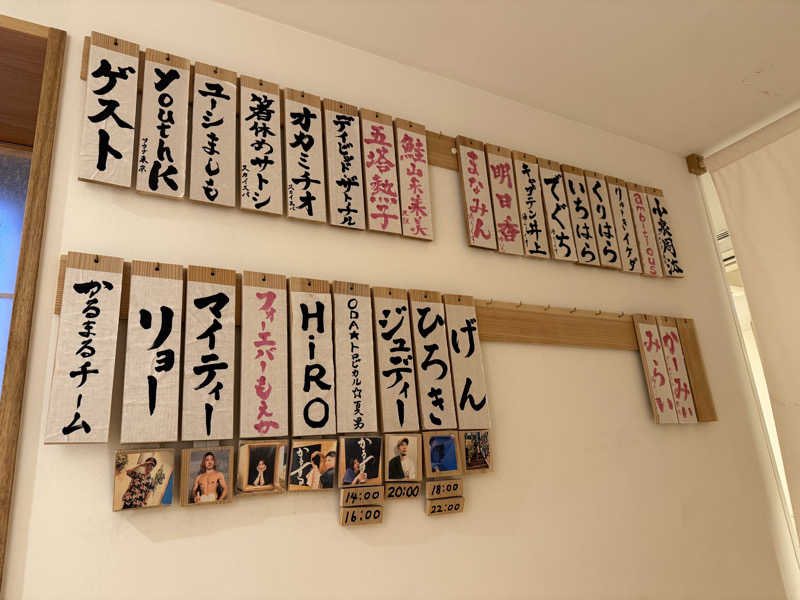 ゲスト
youthK
サウナ東京
ユーシましも
箸休めサトシ
スカイスパ
オカミチオ
スカイスパ
デイビッドサトナル
五塔熱子
鮭山未菜美
まなみん
明日香
キャプテン井上
でぐち
いちはら
くりはら
ambitious
かるまるチーム
リョー
マイティー
フォーエバーもえか
HiRO
ODA☆トロピカル☆夏男
ジュディー
ひろき
げん
みらい
かーみぃ
かるまる
かるまる
14:00
16:00
20:00
18:00
22:00